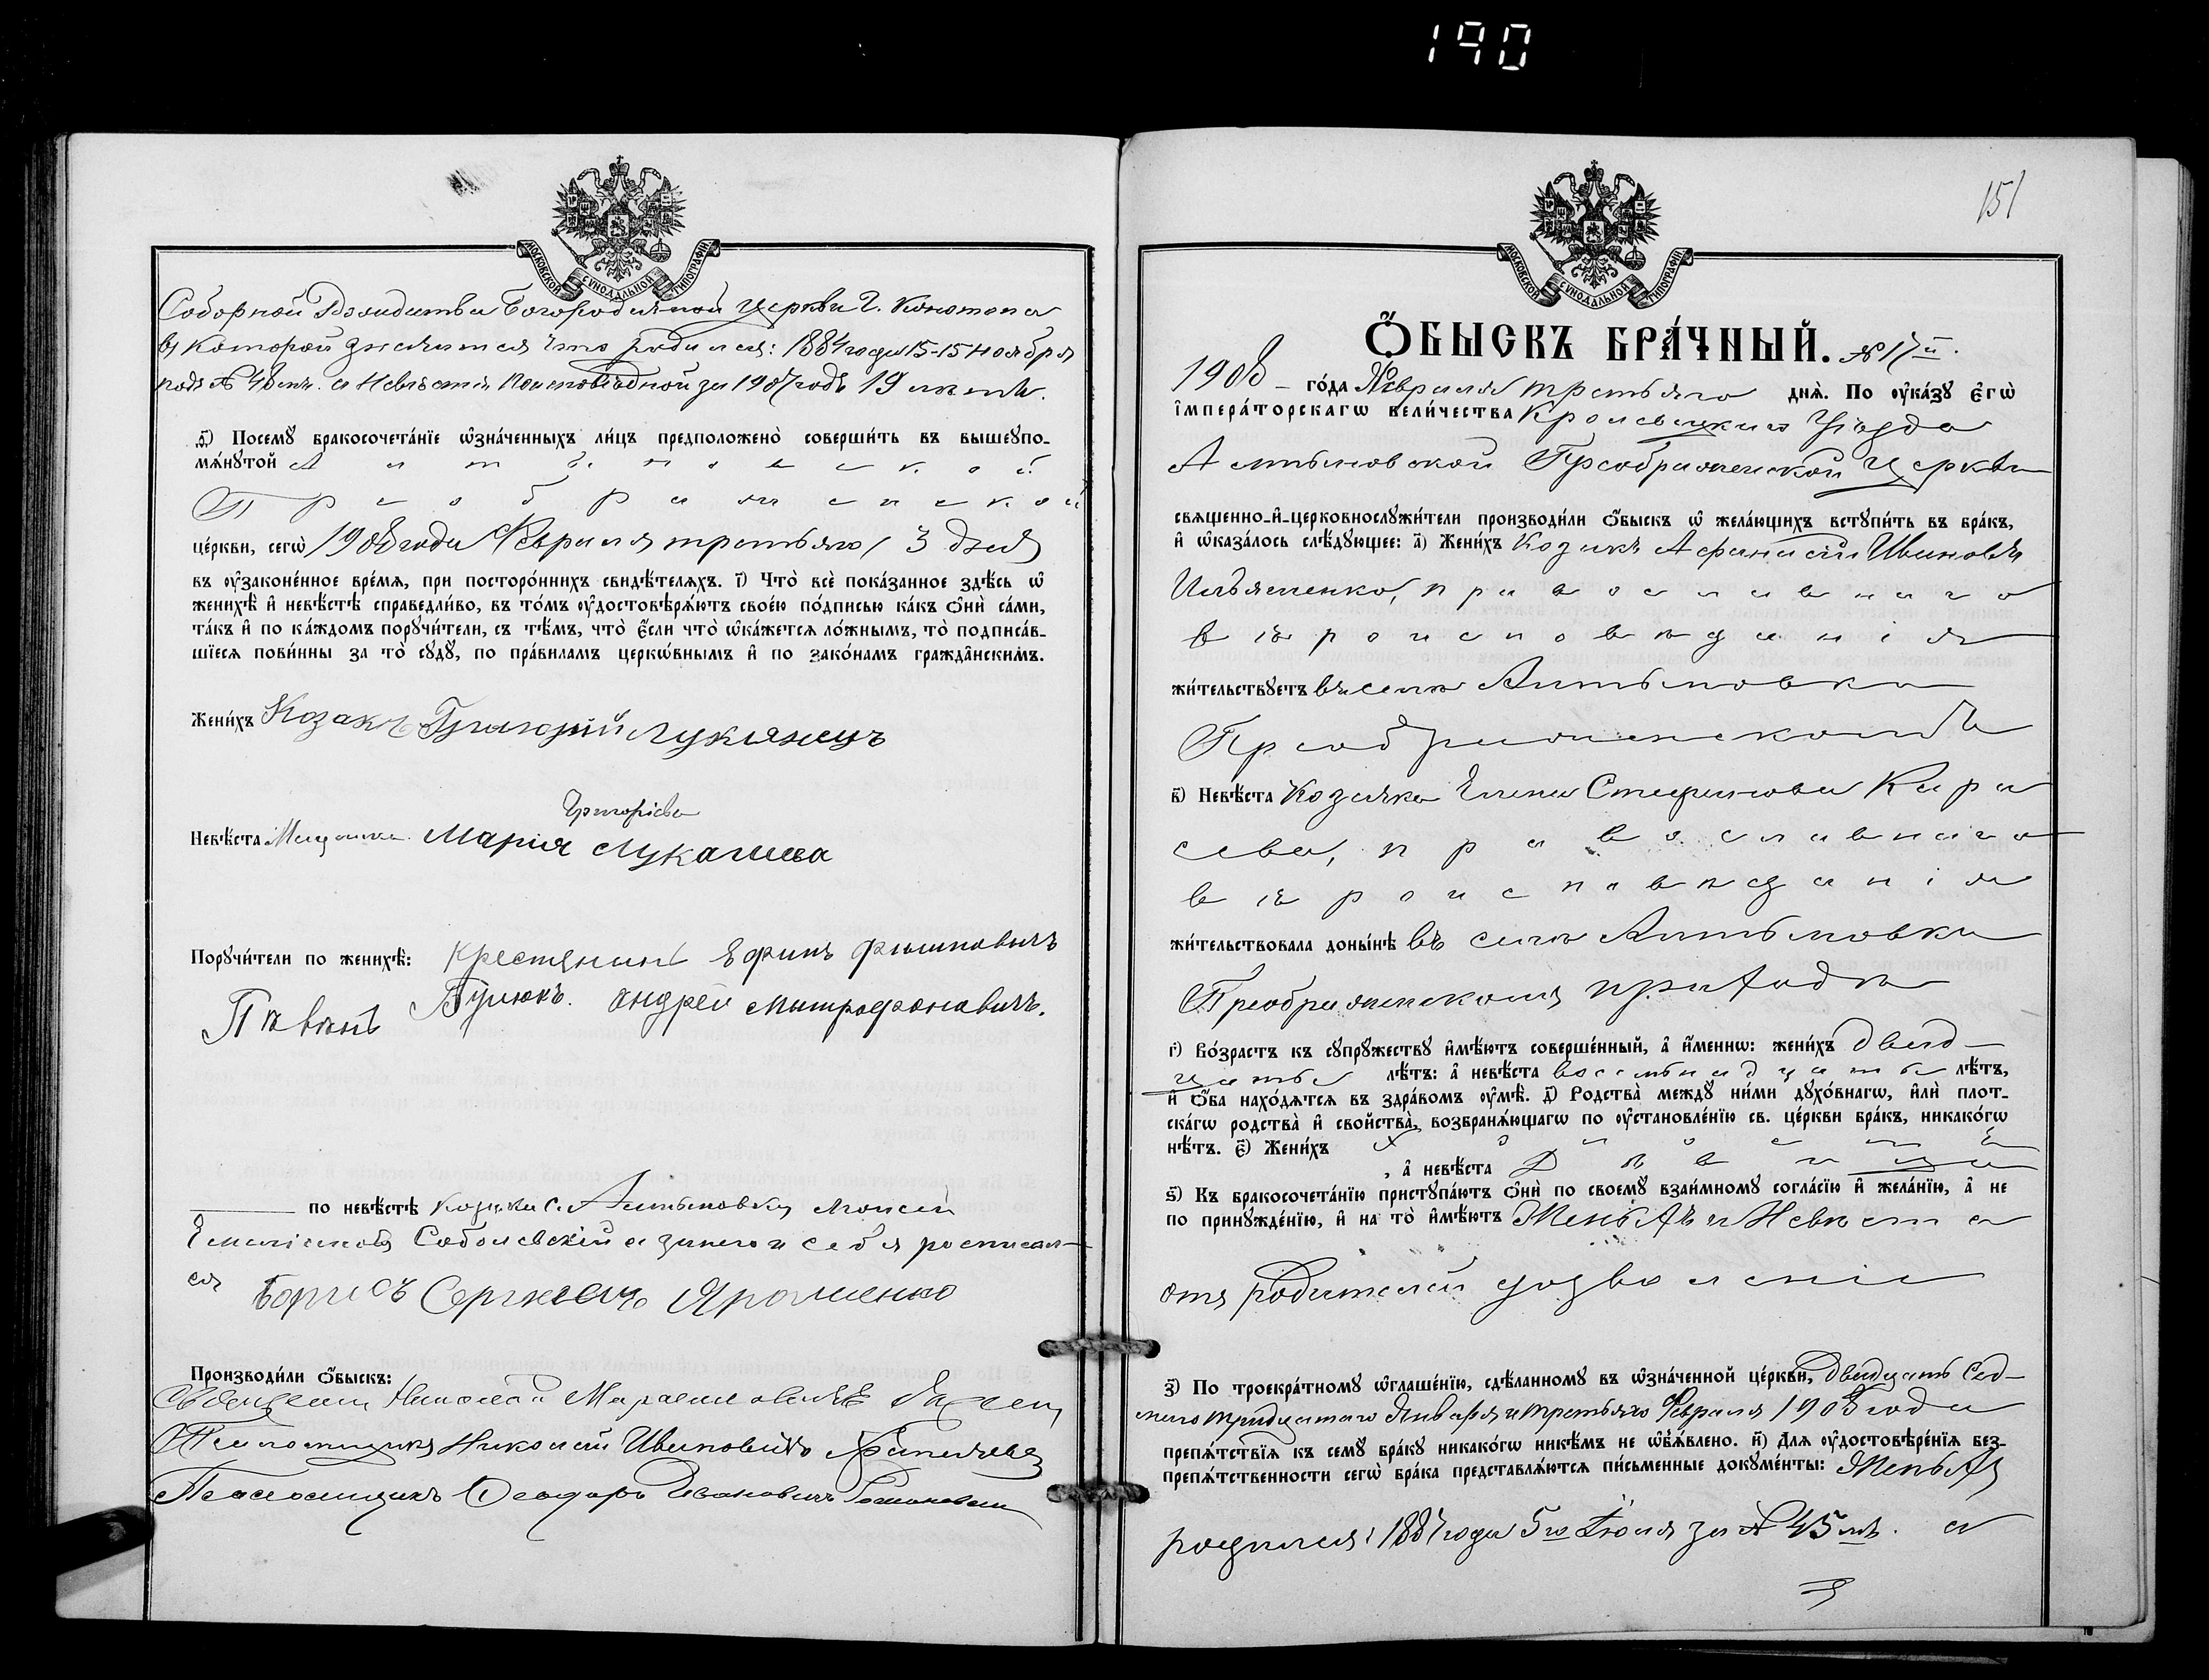 190
МОСКОВСКОЙ СѴНОДАЛЬНОЙ ТИПОГРАФІИ.
Соборной Рождества Богородичной церкви г. Конотопа
въ которой значится что родился: 1884 года 15-15 ноября
подъ № 48 мъ. а Невѣста по исповѣдной за 1907 годъ 19 лѣтъ.
д҃) Посемꙋ бракосочета́нїе ѡ҆зна́ченныхъ ли́цъ предположено̀ соверши́ть въ вышеупо-
мѧ́нꙋтой Алтыновской
Преображенской
це́ркви, сегѡ̀ 1908 года Февраля третьяго / 3 дня
въ ᲂу҆законе́нное вре́мѧ, при посторо́ннихъ свидѣ́телѧхъ. і҃) Что̀ всѐ пока́занное здѣ́сь ѡ҆
женихѣ̀ и҆ невѣ́стѣ справедли́во, въ то́мъ ᲂу҆достовѣрѧ́ютъ свое́ю по́дписью ка́къ ѻ҆нѝ са́ми,
та́къ и҆ по ка́ждомъ порꙋчи́тели, съ тѣ́мъ, что̀ є҆́сли что̀ ѡ҆ка́жется ло́жнымъ, то̀ подписа́в-
шїесѧ пови́нны за то̀ сꙋдꙋ̀, по пра́виламъ церкѡ́внымъ и҆ по зако́намъ гражда̂нскимъ.
Жени́хъ Козакъ Григорій Лукянецъ
Григоріева
Невѣ́ста Мещанка Марія Лукашева
Порꙋчи́тели по женихѣ̀: крестянинъ Ефимъ
Андрей Митрофановичъ.
по невѣ́стѣ козаки с. Алтыновки Моисей
Емеліановъ Соболевскій а за него и себя росписал-
ся Борисъ Сергѣевъ Ярошенко
Производи́ли ѻ҆́быскъ:
Николай
Псаломщикъ Николай Ивановичъ
Псаломщикъ Феодоръ Ивановичъ
151
МОСКОВСКОЙ СѴНОДАЛЬНОЙ ТИПОГРАФІИ.
Ѻ҆БЫСКЪ БРА́ЧНЫЙ. № 17й.
1908 – го́да Февраля третьяго днѧ̀. По ᲂу҆ка́зꙋ є҆гѡ̀
і҆мпера́торскагѡ вели́чества Кролевецкаго Уѣзда
Алтыновской Преображенской церкви
свѧщенно-и҆-церковнослꙋжи́тели производи́ли ѻ҆́быскъ ѡ҆ жела́ющихъ встꙋпи́ть въ бра́къ,
и҆ ѡ҆каза́лось слѣ́дꙋющее: а҃) Жени́хъ Козакъ Афанасій Ивановъ
Ильяшенко, православнаго
вѣроисповѣданія
жи́тельствꙋетъ въ селѣ Алтыновкѣ
Преображенскомъ
в҃) Невѣ́ста Козачка Елена Стефанова Кара
сева, православнаго
вѣроисповѣданія
жи́тельствовала доны́нѣ въ селѣ Алтыновкѣ
Преображенскомъ приходѣ
г҃) Во́зрастъ къ сꙋпрꙋ́жествꙋ и҆мѣ́ютъ соверше́нный, а҆ и҆́менно: жени́хъ двад-
цать лѣ́тъ: а҆ невѣ́ста восемьнадцать лѣ́тъ,
и҆ ѻ҆́ба нахо́дѧтсѧ въ здра́вомъ ᲂу҆мѣ̀. д҃) Родства̀ междꙋ̀ ни́ми дꙋхо́внагѡ, и҆лѝ плот-
ска́гѡ родства̀ и҆ свойства̀, возбранѧ́ющагѡ по ᲂу҆становле́нїю св. це́ркви бра́къ, никако́гѡ
нѣ́тъ. є҃) Жени́хъ холостъ
, а҆ невѣ́ста Дѣвица
ѕ҃) Къ бракосочета́нїю пристꙋпа́ютъ ѻ҆нѝ по своемꙋ̀ взаи́мномꙋ согла́сїю и҆ жела́нїю, а҆ не
по принꙋжде́нїю, и҆ на то̀ и҆мѣ́ютъ Женихъ и Невѣста
отъ родителей дозволеніе
з҃) По троекра́тномꙋ ѡ҆глаше́нїю, сдѣ́ланномꙋ въ ѡ҆зна́ченной це́ркви, двадцать сед-
маго тридцатаго Января и третьяго Февраля 1908 года
препѧ́тствїѧ къ семꙋ̀ бра́кꙋ никако́гѡ никѣ́мъ не ѡ҆б̾ѧ́влено. и҃) Длѧ ᲂу҆достовѣре́нїѧ без-
препѧ́тственности сегѡ̀ бра́ка представлѧ́ютсѧ пи́сьменные докꙋме́нты: Женихъ
родился: 1887 года 5го Іюля за № 45 мъ. а